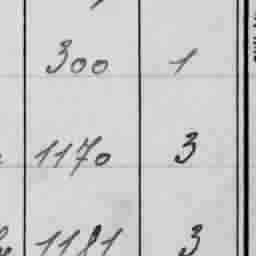 300 1
1170 3
1181 3